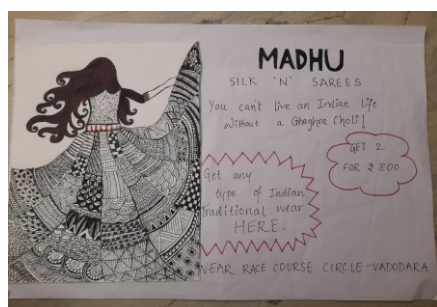 MADHU
SILK 'N' SAREES
You can't live an Indian life
Without a Ghaghra Choli!
GET 2
FOR ₹ 800
Get any
type of Indian
Traditional wear
HERE.
NEAR RACE COURSE CIRCLE - VADODARA